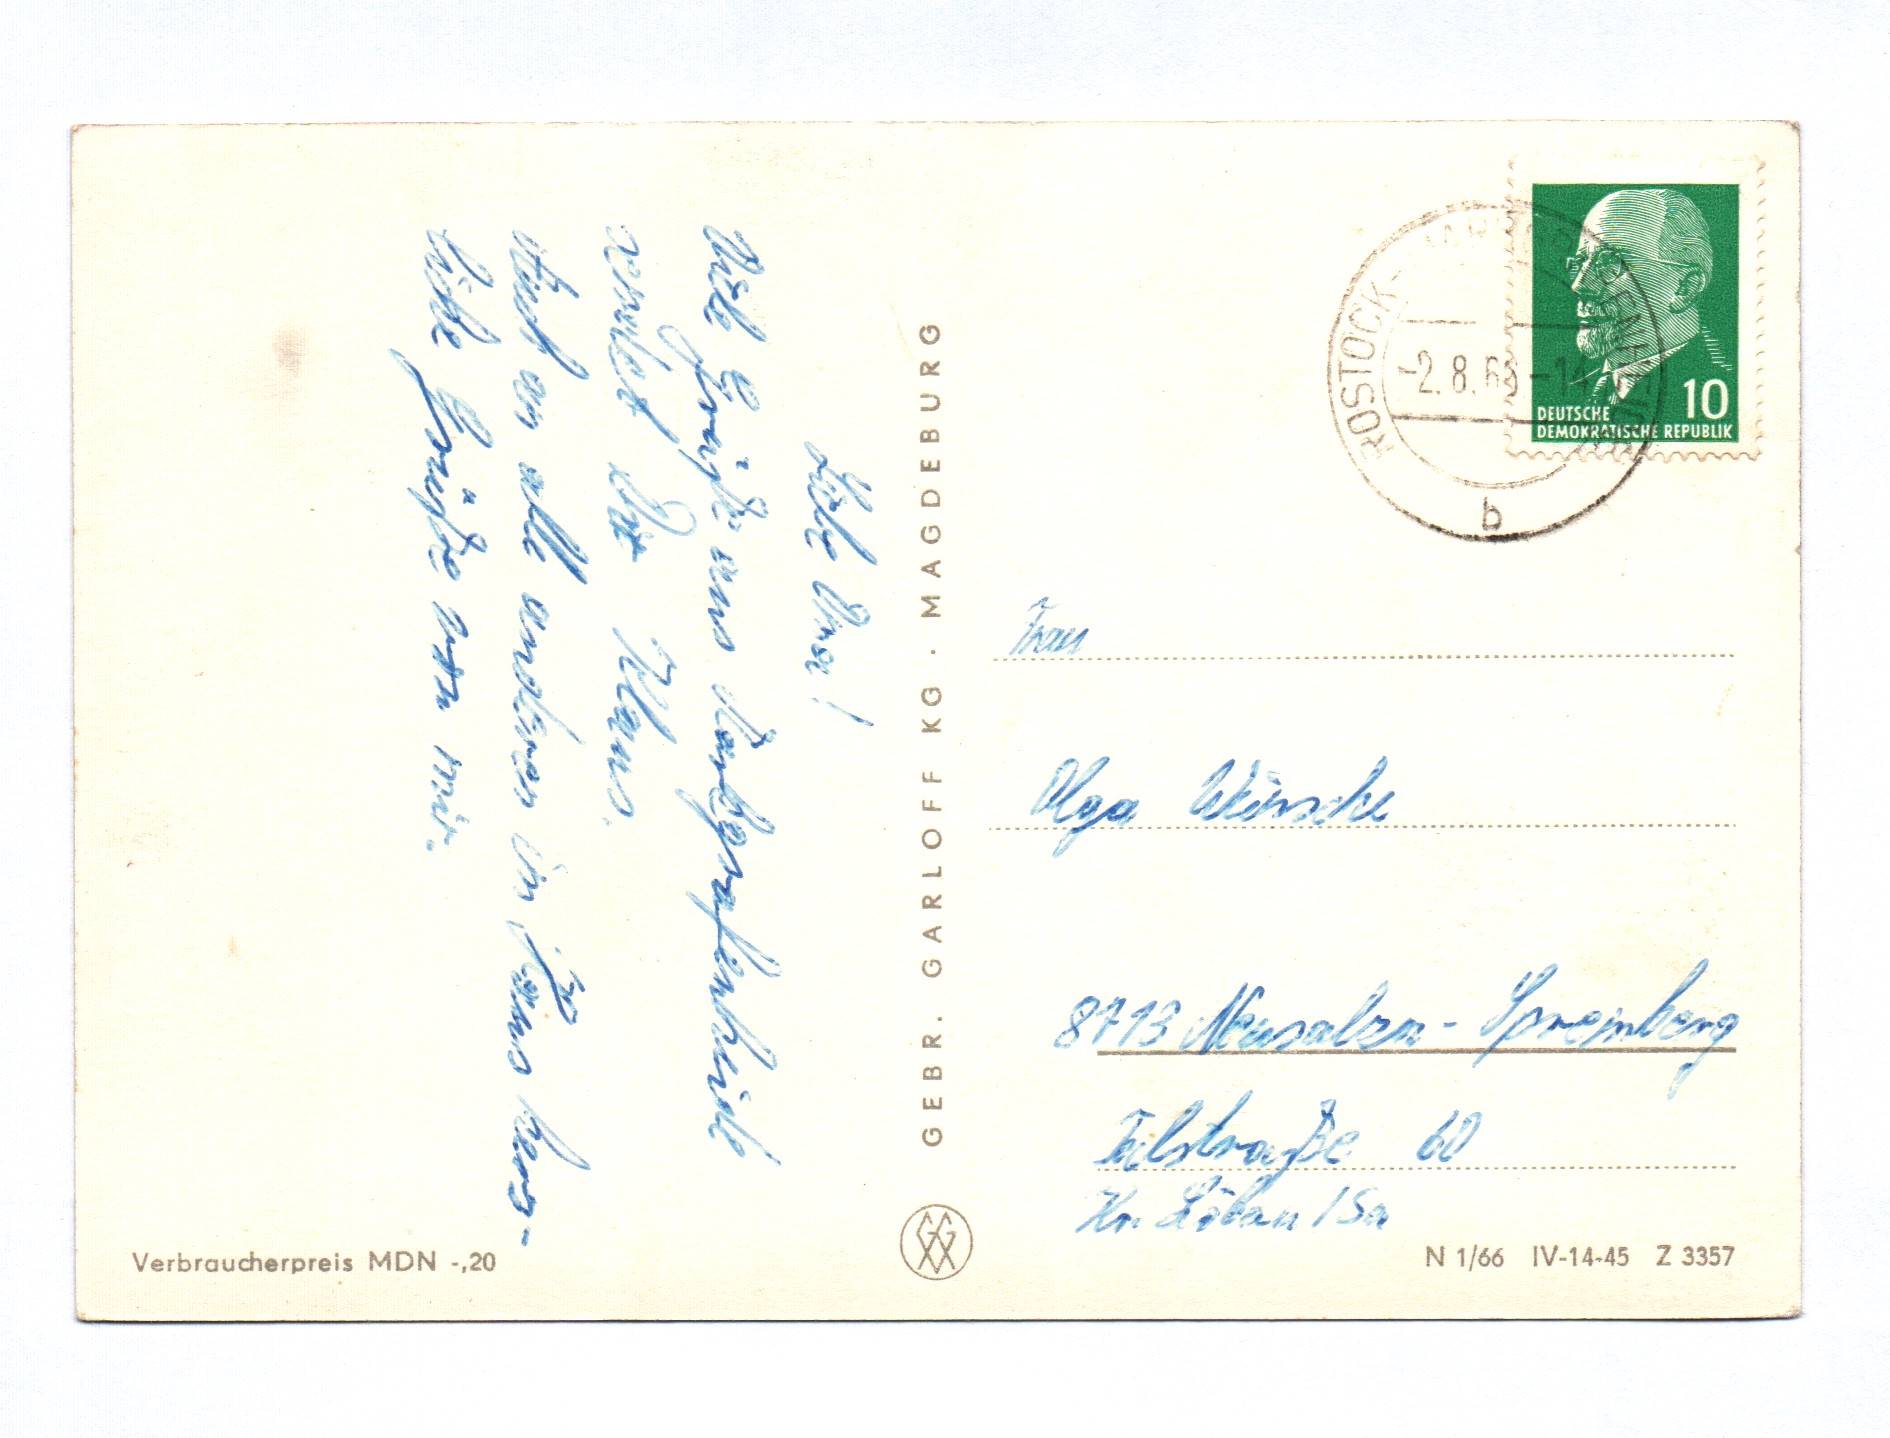 Liebe Oma!
Viele Grüße aus Markgrafenheide
sendet Dir Klaus.
Auch an alle anderen im Haus herz-
liche Grüße von mir.
GEBR. GARLOFF KG · MAGDEBURG
Verbraucherpreis MDN -,20
DEUTSCHE
DEMOKRATISCHE REPUBLIK
10
ROSTOCK-
-2.8.6
b
Frau
Olga Wünsche
8713 Neusalza-Spremberg
Talstraße 60
Kr. Löbau / Sa
N 1/66 IV-14-45 Z 3357